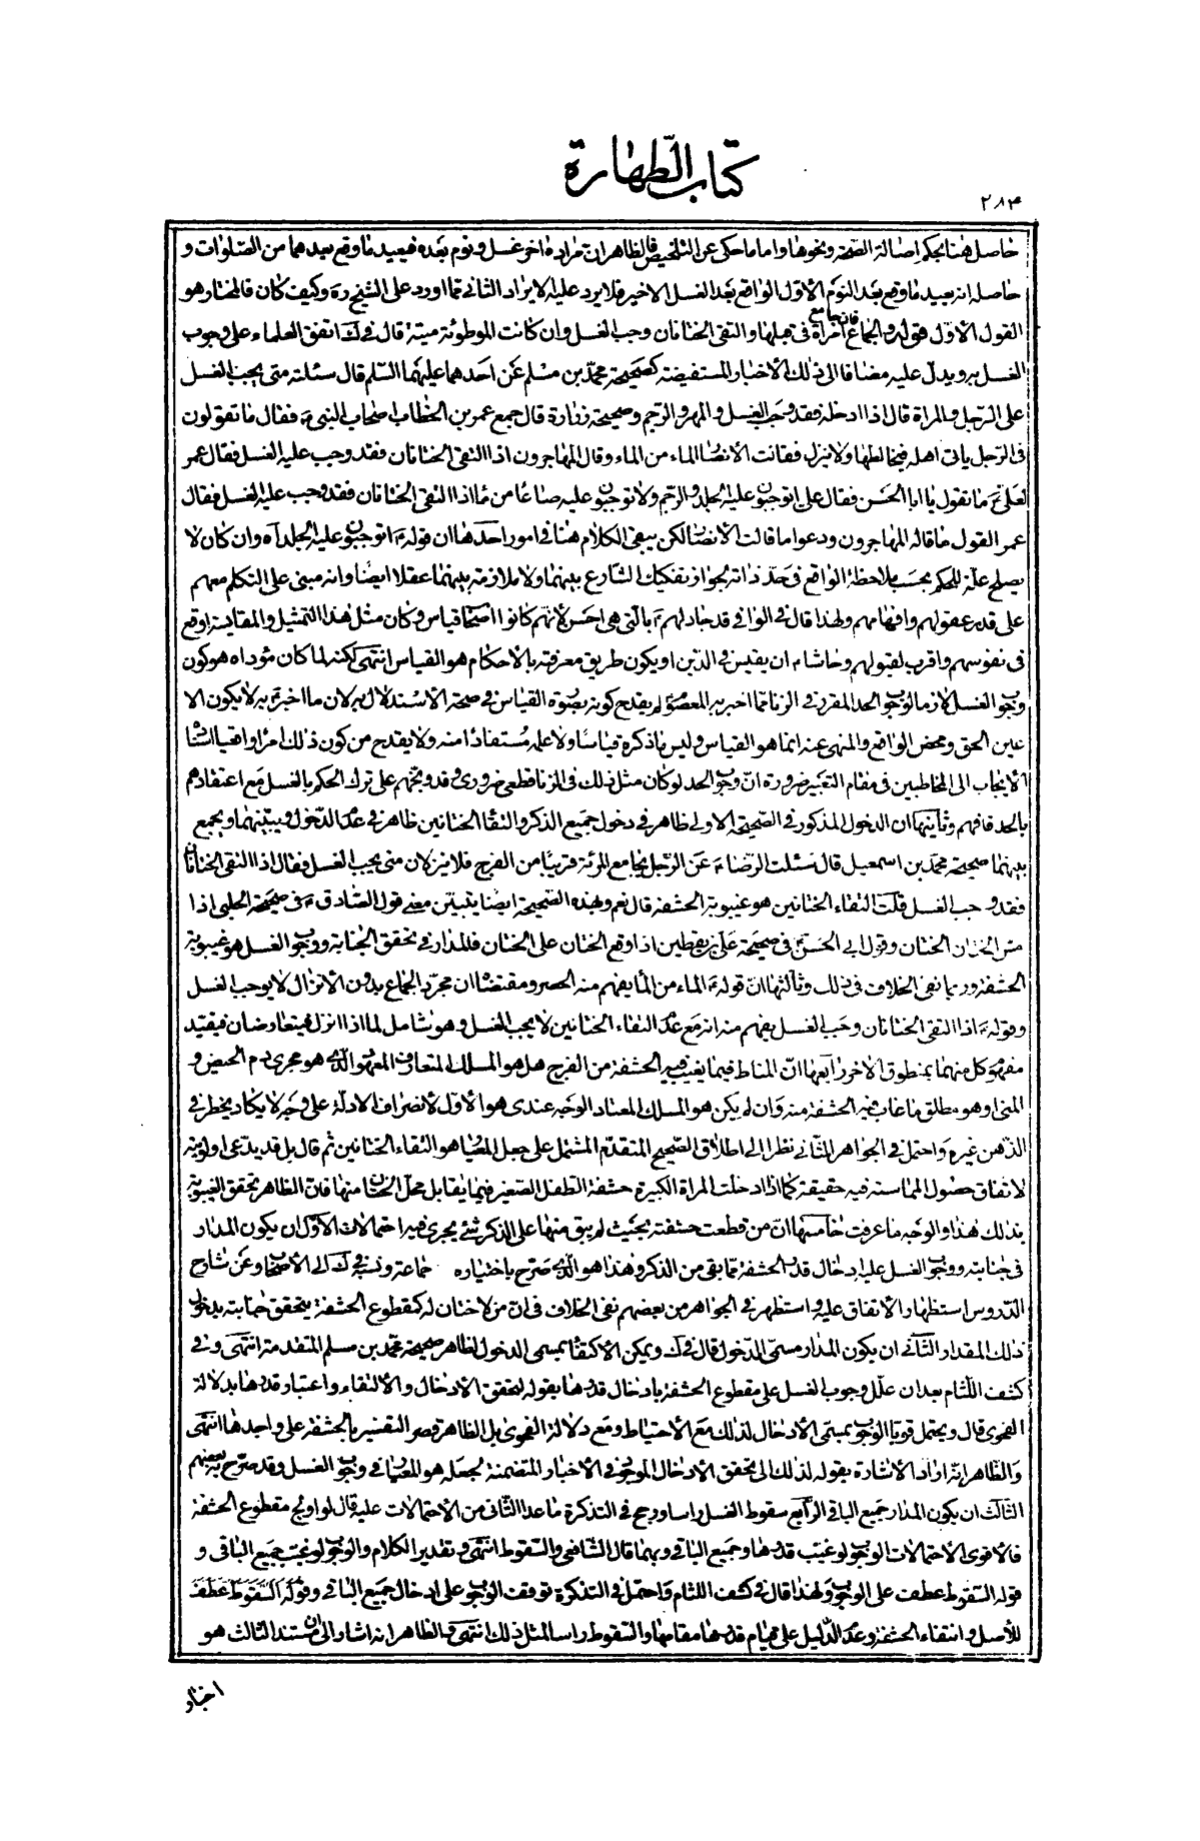 كتاب الطهارة
٢٨٤
حاصل هنا بحكم اصالة الصحة ونحوها واما ما حكى عن التلخيص فالظاهر ان مراده ما خر غسل ونوم بعده فيعيد ما وقع بعدهما من الصلوات و
حاصله انه يعيد ما وقع بعد النوم الأول الواقع بعد الغسل الاخير فلا يرد عليه الايراد الثانى مما اورد على الشيخ ره وكيف كان فالمختار هو
القول الاوّل قوله والجماع فان جامع امراة فى قبلها والتقى الختانان وجب الغسل وان كانت الموطوئة ميتة قال فى ك اتفق العلماء على وجوب
الغسل به ويدلّ عليه مضافا الى ذلك الأخبار المستفيضة كصحيحة محمّد بن مسلم عن احدهما عليهما السّلم قال سئلته متى يجب الغسل
على الرّجل والمراة قال اذا ادخله فقد وجب الغسل والمهر والرّجم وصحيحة زرارة قال جمع عمر بن الخطاب اصحاب النبى ص فقال ما تقولون
فى الرّجل ياتى اهله فيخالطها ولا ينزل فقالت الأنصار الماء من الماء وقال المهاجرون اذا التقى الختانان فقد وجب عليه الغسل فقال عمر
لعلى ع ما تقول يا ابا الحسن فقال على ع اتوجبون عليه الجلد والرّجم ولا توجبون عليه صاعًا من ماء اذا التقى الختانان فقد وجب عليه الغسل فقال
عمر القول ما قاله المهاجرون ودعوا ما قالت الأنصار لكن يبقى الكلام هنا فى امور احدها ان قوله ع اتوجبون عليه الجلد آه وان كان لا
يصلح علّة للحكم بحسب ملاحظة الواقع فى حدّ ذاته لجواز تفكيك الشارع بينهما ولا ملازمة بينهما عقلا ايضًا وانه مبنى على التكلم معهم
على قدر عقولهم وافهامهم ولهذا قال فى الوافى قد جادلهم ع بالّتى هى احسن لانّهم كانوا اصحاب قياس وكان مثل هذا التمثيل والمقايسة اوقع
فى نفوسهم واقرب لقبولهم وحاشاه ان يقيس فى الدّين او يكون طريق معرفته بالأحكام هو القياس انتهى لكنه لما كان مؤداه هو كون
وجوب الغسل لازما لوجوب الحد المقرر فى الزنا مما اخبر به المعصوم لم يقدح كونه بصورة القياس فى صحة الاستدلال به لان ما اخبر به لا يكون الا
عين الحق ومحض الواقع والمنهى عنه انما هو القياس وليس ما ذكره قياسًا ولا علمه مستفادًا منه ولا يقدح من كون ذلك امرا واقعيا انتساب
الايجاب الى المخاطبين فى مقام التعبير ضرورة انّ وجوب الحد لو كان مثل ذلك فى الزنا قطعى ضرورى وقد وبّخهم على ترك الحكم بالغسل مع اعتقادهم
بالحد فافهم وثانيها ان الدخول المذكور فى الصّحيحة الاولى ظاهر فى دخول جميع الذكر والتقاء الختانين ظاهر فى عدم الدّخول ويبيّنهما ويجمع
بينهما صحيحة محمّد بن اسمعيل قال سئلت الرّضا ع عن الرّجل يجامع المرئة قريبًا من الفرج فلا ينزلان متى يجب الغسل فقال اذا التقى الختانان
فقد وجب الغسل قلت التقاء الختانين هو غيبوبة الحشفة قال نعم وبهذه الصّحيحة ايضًا يتبيّن معنى قول الصّادق ع فى صحيحة الحلبى اذا
مسّ الختان الختان وقول ابى الحسن ع فى صحيحة على بن يقطين اذا وقع الختان على الختان فالمدار فى تحقق الجنابة ووجوب الغسل هو غيبوبة
الحشفة وربما نفى الخلاف فى ذلك وثالثها انّ قوله ع الماء من الماء يفهم منه الحصر ومقتضاه ان مجرّد الجماع بدون الأنزال لا يوجب الغسل
وقوله ع اذا التقى الختانان وجب الغسل يفهم منه انه مع عدم التقاء الختانين لا يجب الغسل وهو شامل لما اذا انزل فيتعارضان فيقيّد
مفهوم كل منهما بمنطوق الاخر رابعها انّ المناط فيما يغيب فيه الحشفة من الفرج هل هو المسلك المتعارف المعهود الّذى هو مجرى دم الحيض و
المنى او هو مطلق ما غاب فيه الحشفة منه وان لم يكن هو المسلك المعتاد الوجه عندى هو الأوّل لأنصراف الادلّة على وجه لا يكاد يخطر فى
الذهن غيره واحتمل فى الجواهر الثّانى نظرا الى اطلاق الصّحيح المتقدّم المشتمل على جعل المعيار هو التقاء الختانين ثم قال بل قد يدّعى اولويّته
لاتفاق حصول المماسة فيه حقيقة كما اذا ادخلت المراة الكبيرة حشفة الطفل الصّغير فيما يقابل محلّ الختان منها فانّ الظاهر تحقق الغيبوبة
بذلك هذا والوجه ما عرفت خامسها انّ من قطعت حشفته بحيث لم يبق منها على الذكر شئ يجرى فيه احتمالات الأوّل ان يكون المدار
فى جنابته ووجوب الغسل عليه ادخال قدر الحشفة ممّا بقى من الذكر وهذا هو الّذى صرّح باختياره جماعة ونسبه فى ك الى الأصحاب وعن شارح
الدّروس استظهار الأتفاق عليه واستظهر فى الجواهر من بعضهم نفى الخلاف فى ان من لا ختان له كمقطوع الحشفة يتحقق جنابته بدخول
ذلك المقدار الثّانى ان يكون المدار مسمّى الدّخول قال فى ك ويمكن الأكتفاء بمسمى الدخول لظاهر صحيحة محمّد بن مسلم المتقدمة انتهى وفى
كشف اللّثام بعد ان علّل وجوب الغسل على مقطوع الحشفة بادخال قدرها بقوله لتحقق الأدخال والألتقاء واعتبار قدرها بدلالة
الفحوى قال ويحتمل قويّا الوجوب بمسمّى الأدخال لذلك مع الأحتياط ومع دلالة الفحوى بل الظاهر قصر التفسير بالحشفة على واجدها انتهى
والظّاهر انّه اراد الأشارة بقوله لذلك الى تحقق الأدخال الموجود فى الأخبار المتضمنة لجعله هو المعيار فى وجوب الغسل وقد صرّح به بعضهم
الثالث ان يكون المدار جميع الباقى الرّابع سقوط الغسل راسا ورجح فى التذكرة ما عدا الثّانى من الأحتمالات عليه قال لو اولج مقطوع الحشفة
فالأقوى الأحتمالات الوجوب لو غيّب قدرها وجميع الباقى وبهما قال الشّافعى والسّقوط انتهى وتقدير الكلام والوجوب لو غيّب جميع الباقى و
قوله السّقوط عطف على الوجوب ولهذا قال فى كشف اللثام واحتمل فى التذكرة توقف الوجوب على ادخال جميع الباقى وقوله السّقوط عطف
للأصل وانتفاء الحشفة وعدم الدّليل على قيام قدرها مقامها والسّقوط راسا لمثل ذلك انتهى والظاهر انه اشار الى ان مستند الثالث هو
اخبار